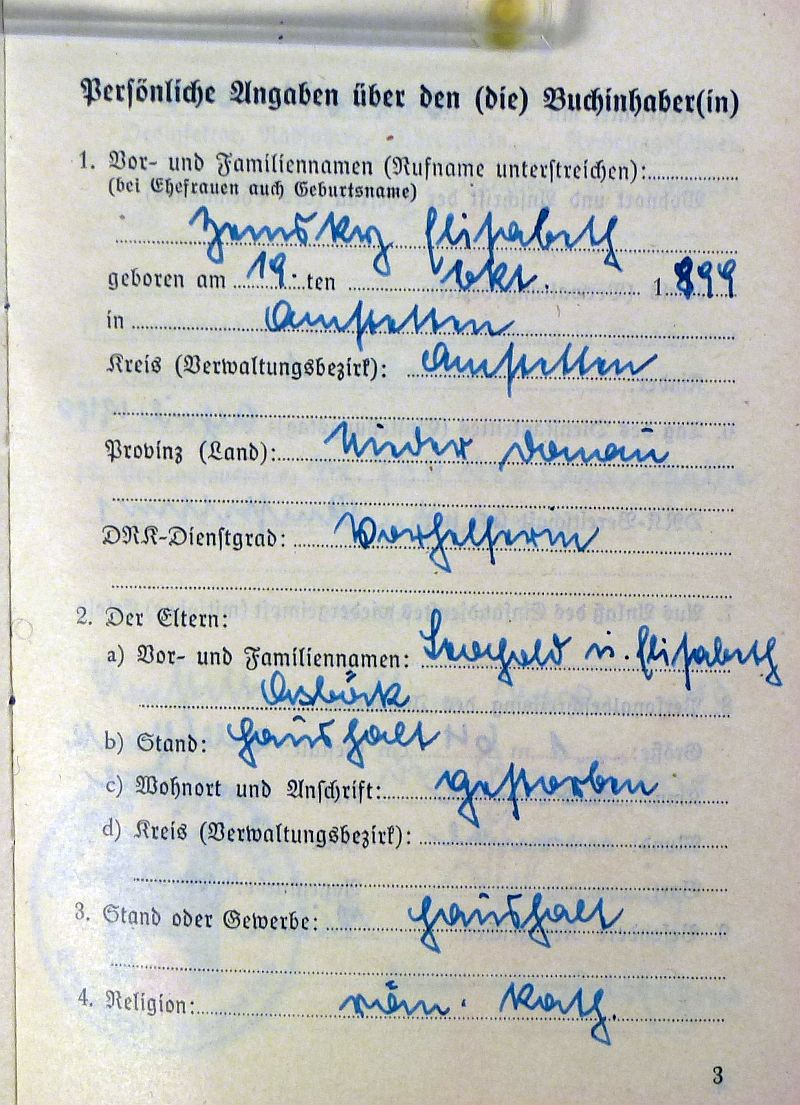 Persönliche Angaben über den (die) Buchinhaber(in)
1. Vor- und Familiennamen (Rufname unterstreichen):
(bei Ehefrauen auch Geburtsname)
Zemsky Elisabeth
geboren am 19. ten Okt. 1899
in Amstetten
Kreis (Verwaltungsbezirk): Amstetten
Provinz (Land): Nieder Donau
DRK-Dienstgrad: Vorhelferin
2. Der Eltern:
a) Vor- und Familiennamen: Leopold u. Elisabeth
b) Stand: Haushalt
c) Wohnort und Anschrift: gestorben
d) Kreis (Verwaltungsbezirk):
3. Stand oder Gewerbe: Haushalt
4. Religion: röm. kath.
3